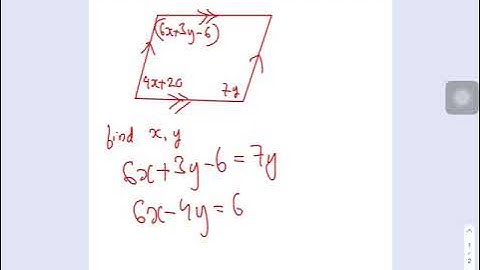 (6x+3y-6)
4x+20
7y
find x, y
6x+3y-6=7y
6x-4y=6
1
2